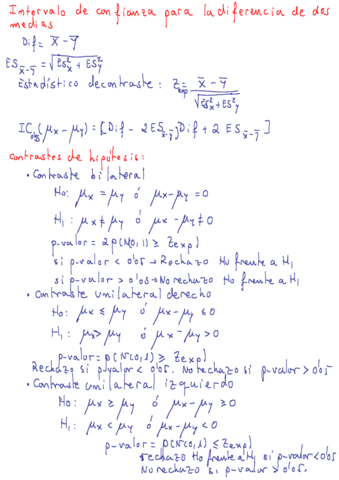 Intervalo de confianza para la diferencia de dos
medias
Dif = x̄ - ȳ
ES x̄-ȳ = √(ES²x̄ + ES²ȳ)
Estadístico de contraste : Zexp = (x̄ - ȳ) / √(ES²x̄ + ES²ȳ)
IC 0'95 (μx - μy) = [Dif - 2 ES x̄-ȳ; Dif + 2 ES x̄-ȳ]
Contrastes de hipótesis:
• Contraste bilateral
H0: μx = μy ó μx - μy = 0
H1: μx ≠ μy ó μx - μy ≠ 0
p-valor = 2 p(N(0,1) ≥ Zexp)
si p-valor < 0'05 → Rechazo H0 frente a H1
si p-valor > 0'05 → No rechazo H0 frente a H1
• Contraste unilateral derecho
H0: μx ≤ μy ó μx - μy ≤ 0
H1: μx > μy ó μx - μy > 0
p-valor = p(N(0,1) ≥ Zexp)
Rechazo si p-valor < 0'05. No rechazo si p-valor > 0'05
• Contraste unilateral izquierdo
H0: μx ≥ μy ó μx - μy ≥ 0
H1: μx < μy ó μx - μy < 0
p-valor = p(N(0,1) ≤ Zexp)
rechazo H0 frente a H1 si p-valor < 0'05
No rechazo si p-valor > 0'05.